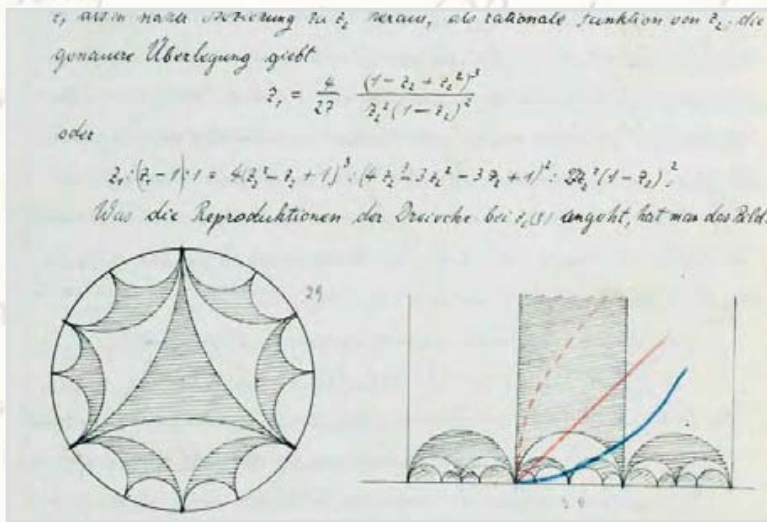 z₁ als in naher Beziehung zu z₂ heraus, als rationale Funktion von z₂. die
genauere Überlegung giebt
z₁ = 4/27 (1 − z₂ + z₂²)³ / z₂²(1 − z₂)²
oder
z₁ : (z₁ − 1) : 1 = 4(z₂² − z₂ + 1)³ : (4z₂³ − 3z₂² − 3z₂ + 1)² : 27z₂²(1 − z₂)².
Was die Reproduktionen der Dreiecke bei z₂(s) angeht, hat man das Bild.
29